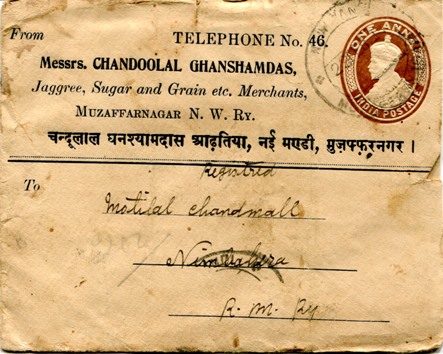 From
TELEPHONE No. 46.
Messrs. CHANDOOLAL GHANSHAMDAS,
Jaggree, Sugar and Grain etc. Merchants,
MUZAFFARNAGAR N. W. RY.
चन्दूलाल घनश्यामदास आढ़तिया, नई मण्डी, मुज़फ्फरनगर ।
ONE ANNA
INDIA POSTAGE
To
Registred
Motilal Chandmall
Nimbahera
R. M. Ry